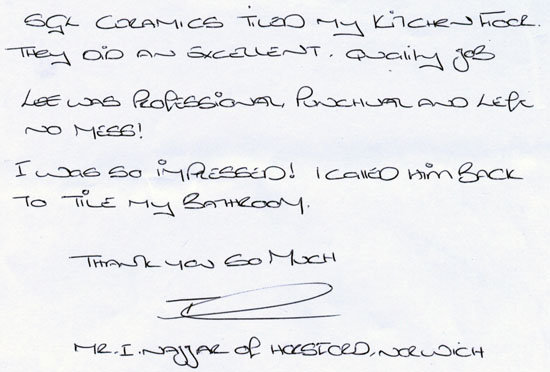 SGL CERAMICS TILED MY KITCHEN FLOOR.
THEY DID AN EXCELLENT. QUALITY JOB
LEE WAS PROFESSIONAL, PUNCHUAL AND LEFT
NO MESS!
I WAS SO IMPRESSED! I CALLED HIM BACK
TO TILE MY BATHROOM.
THANK YOU SO MUCH
MR. I. NAJJAR OF HORSFORD, NORWICH